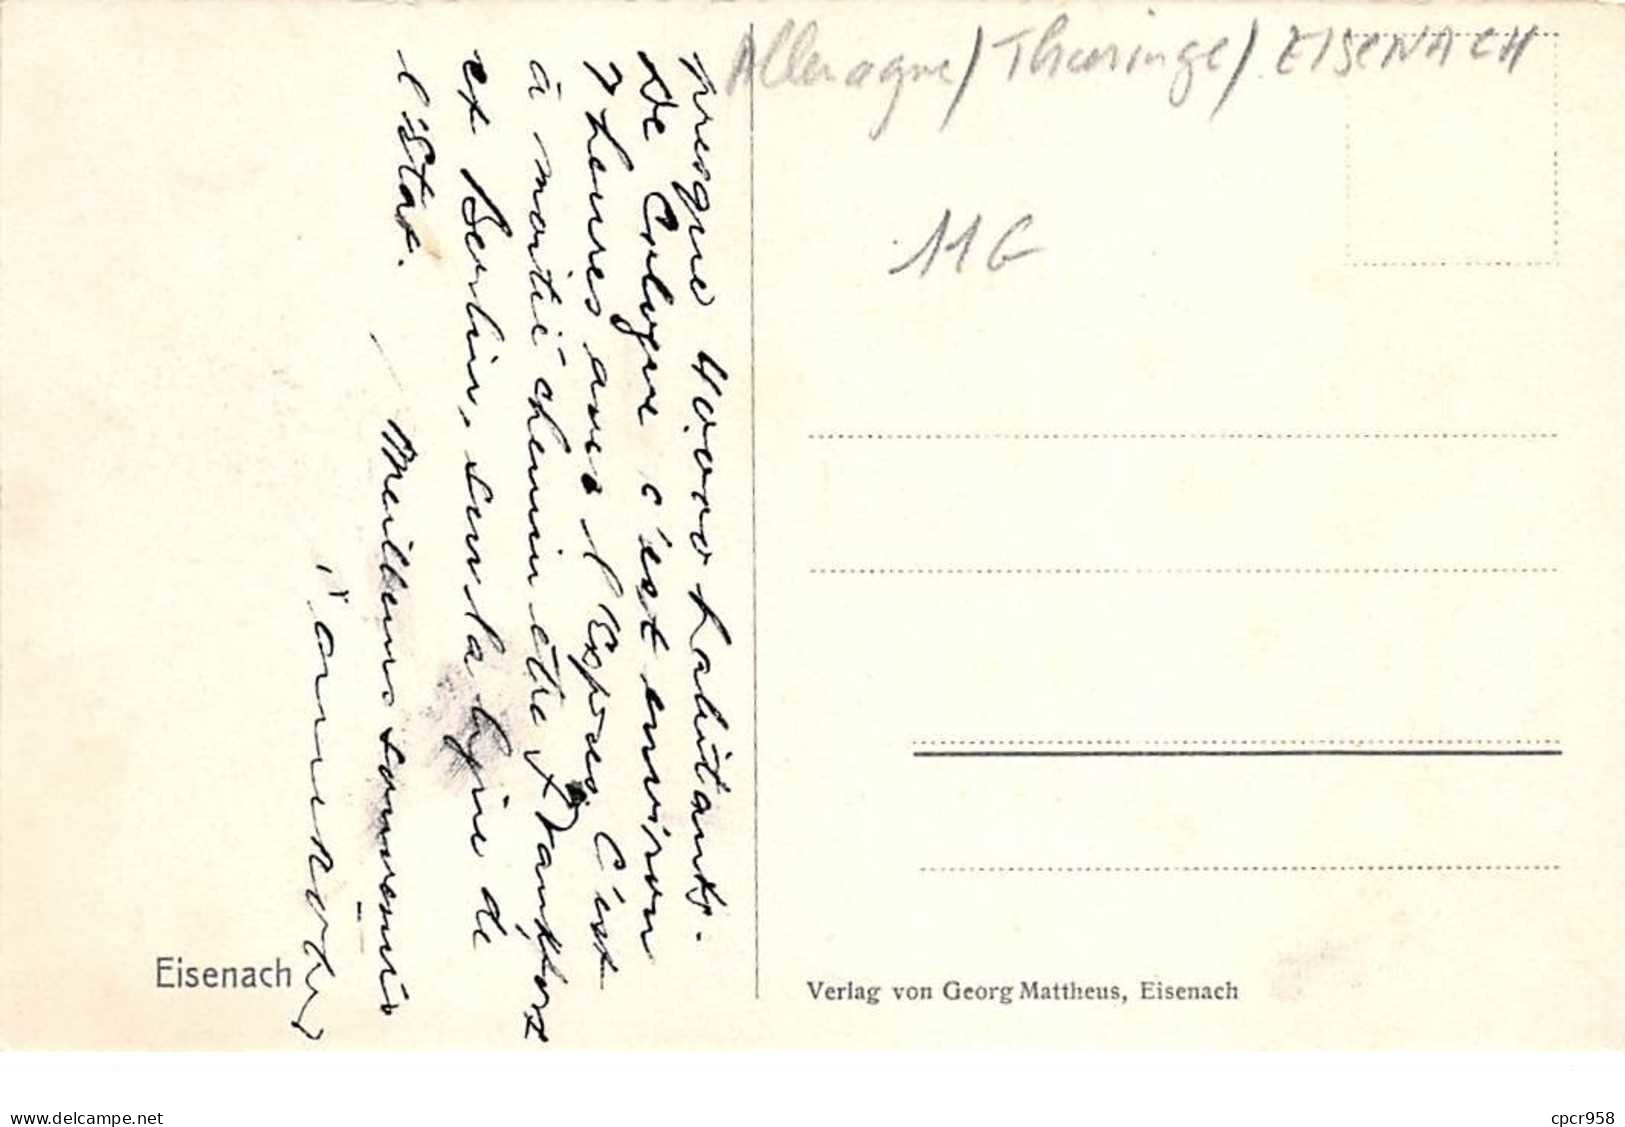 Allemagne / Thuringe / EISENACH
11G
presque 40.000 habitants.
De Cologne c'est environ
7 heures avec l'Expres. C'est
à moitié chemin être Frankfort
et Berlin, sur la ligne de
l'Etat.
Meilleurs souvenirs
Eisenach
Verlag von Georg Mattheus, Eisenach
www.delcampe.net
cpcr958